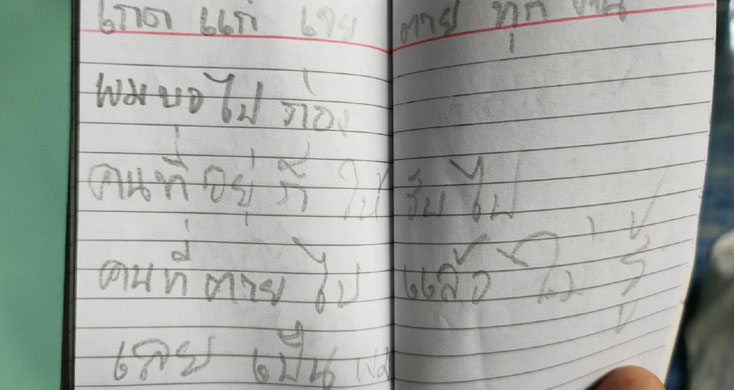 เกิด แก่ เจ็บ ตาย ทุก
ผมขอไป ก่อน
คนที่อยู่ ก็ ใช้ รับ ไป
คนที่ ตาย ไป แล้ว ไม่ รู้
เลย เป็น